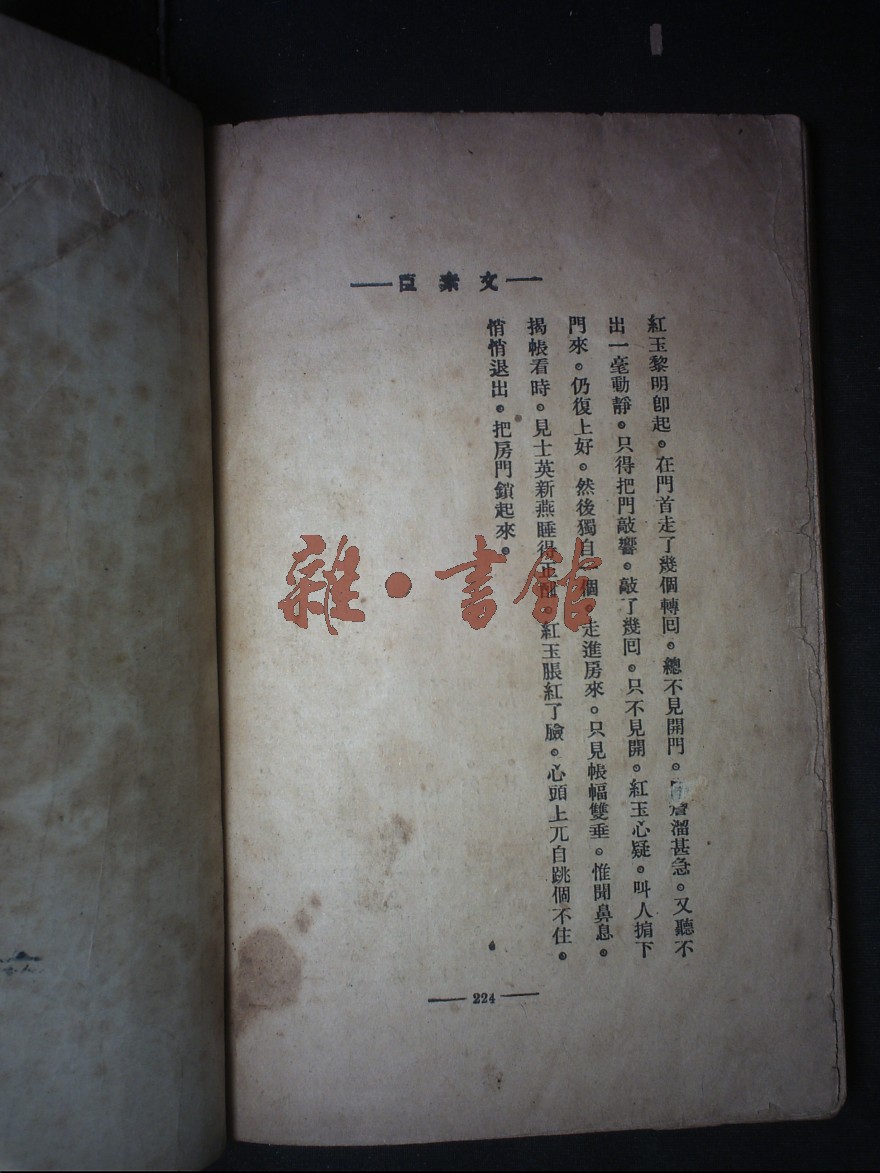 文素臣
紅玉黎明卽起。在門首走了幾個轉囘。總不見開門。簷溜甚急。又聽不
出一毫動靜。只得把門敲響。敲了幾囘。只不見開。紅玉心疑。叫人掮下
門來。仍復上好。然後獨自一個。走進房來。只見帳幅雙垂。惟聞鼻息。
揭帳看時。見士英新燕睡得正。紅玉脹紅了臉。心頭上兀自跳個不住。
悄悄退出。把房門鎖起來。
224
雜·書館